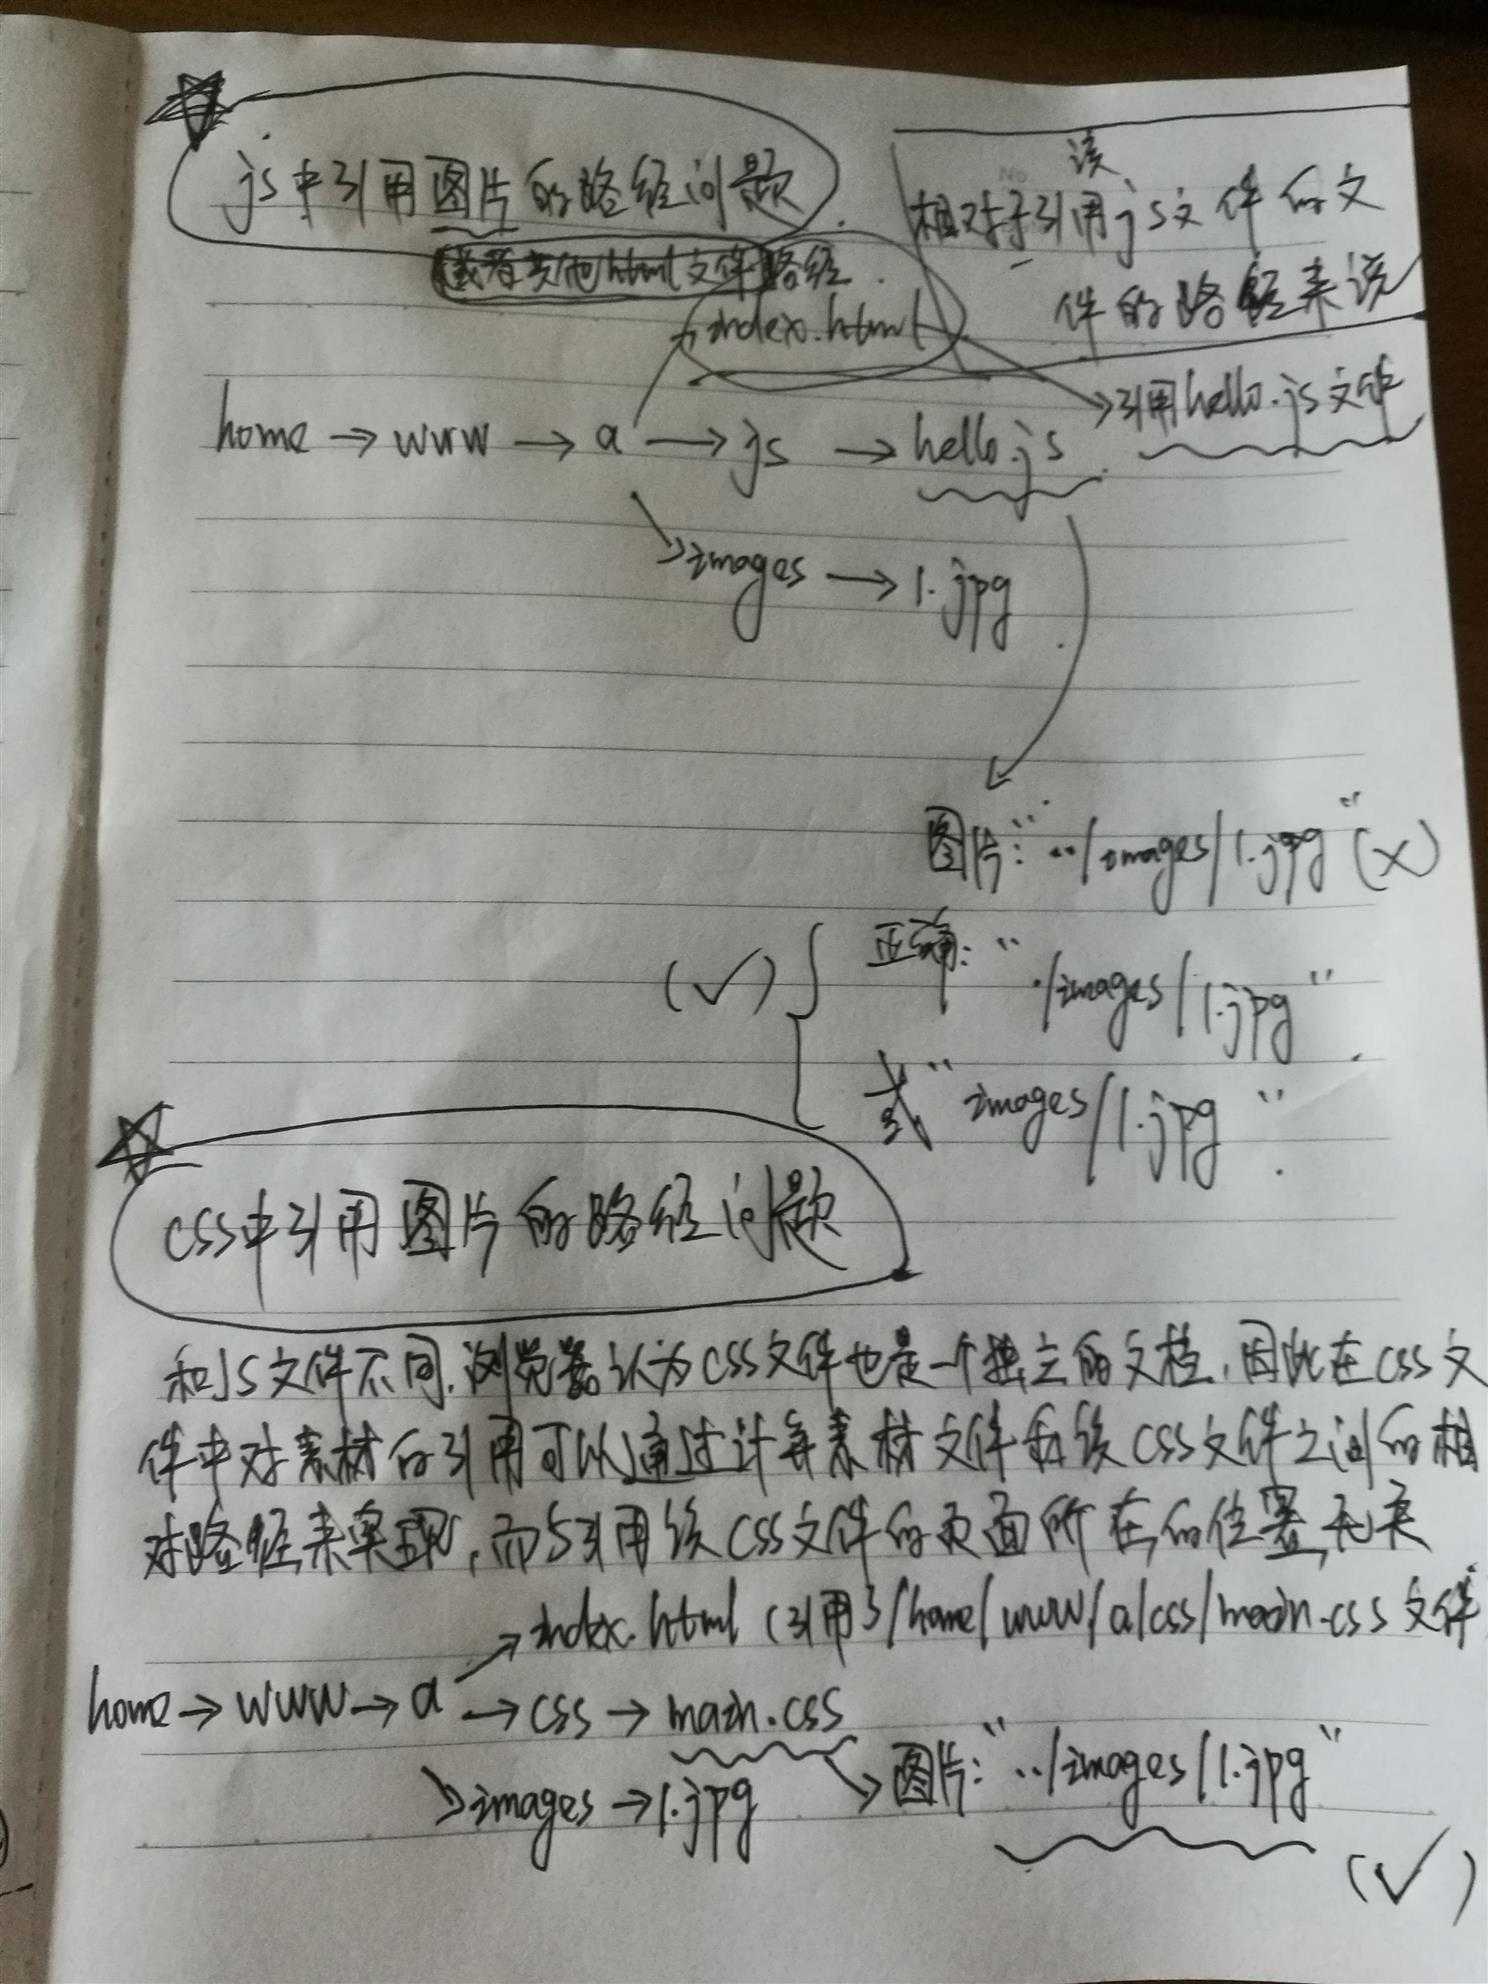 js中引用图片的路径问题
或者其他html文件路径
该
相对于引用js文件的文
件的路径来说
index.html
引用hello.js文件
home → www → a → js → hello.js
images → 1.jpg
图片:"../images/1.jpg"(×)
(√) 正确:"./images/1.jpg"
或"images/1.jpg".
css中引用图片的路径问题
和JS文件不同,浏览器认为css文件也是一个独立的文档,因此在css文
件中对素材的引用可以通过计算素材文件和该css文件之间的相
对路径来实现,而与引用该css文件的页面所在的位置无关
index.html (引用了/home/www/a/css/main.css文件
home → www → a → css → main.css
images → 1.jpg
图片:"../images/1.jpg"
(√)